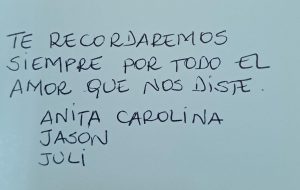 TE RECORDAREMOS
SIEMPRE POR TODO EL
AMOR QUE NOS DISTE.
ANITA CAROLINA
JASON
JULI